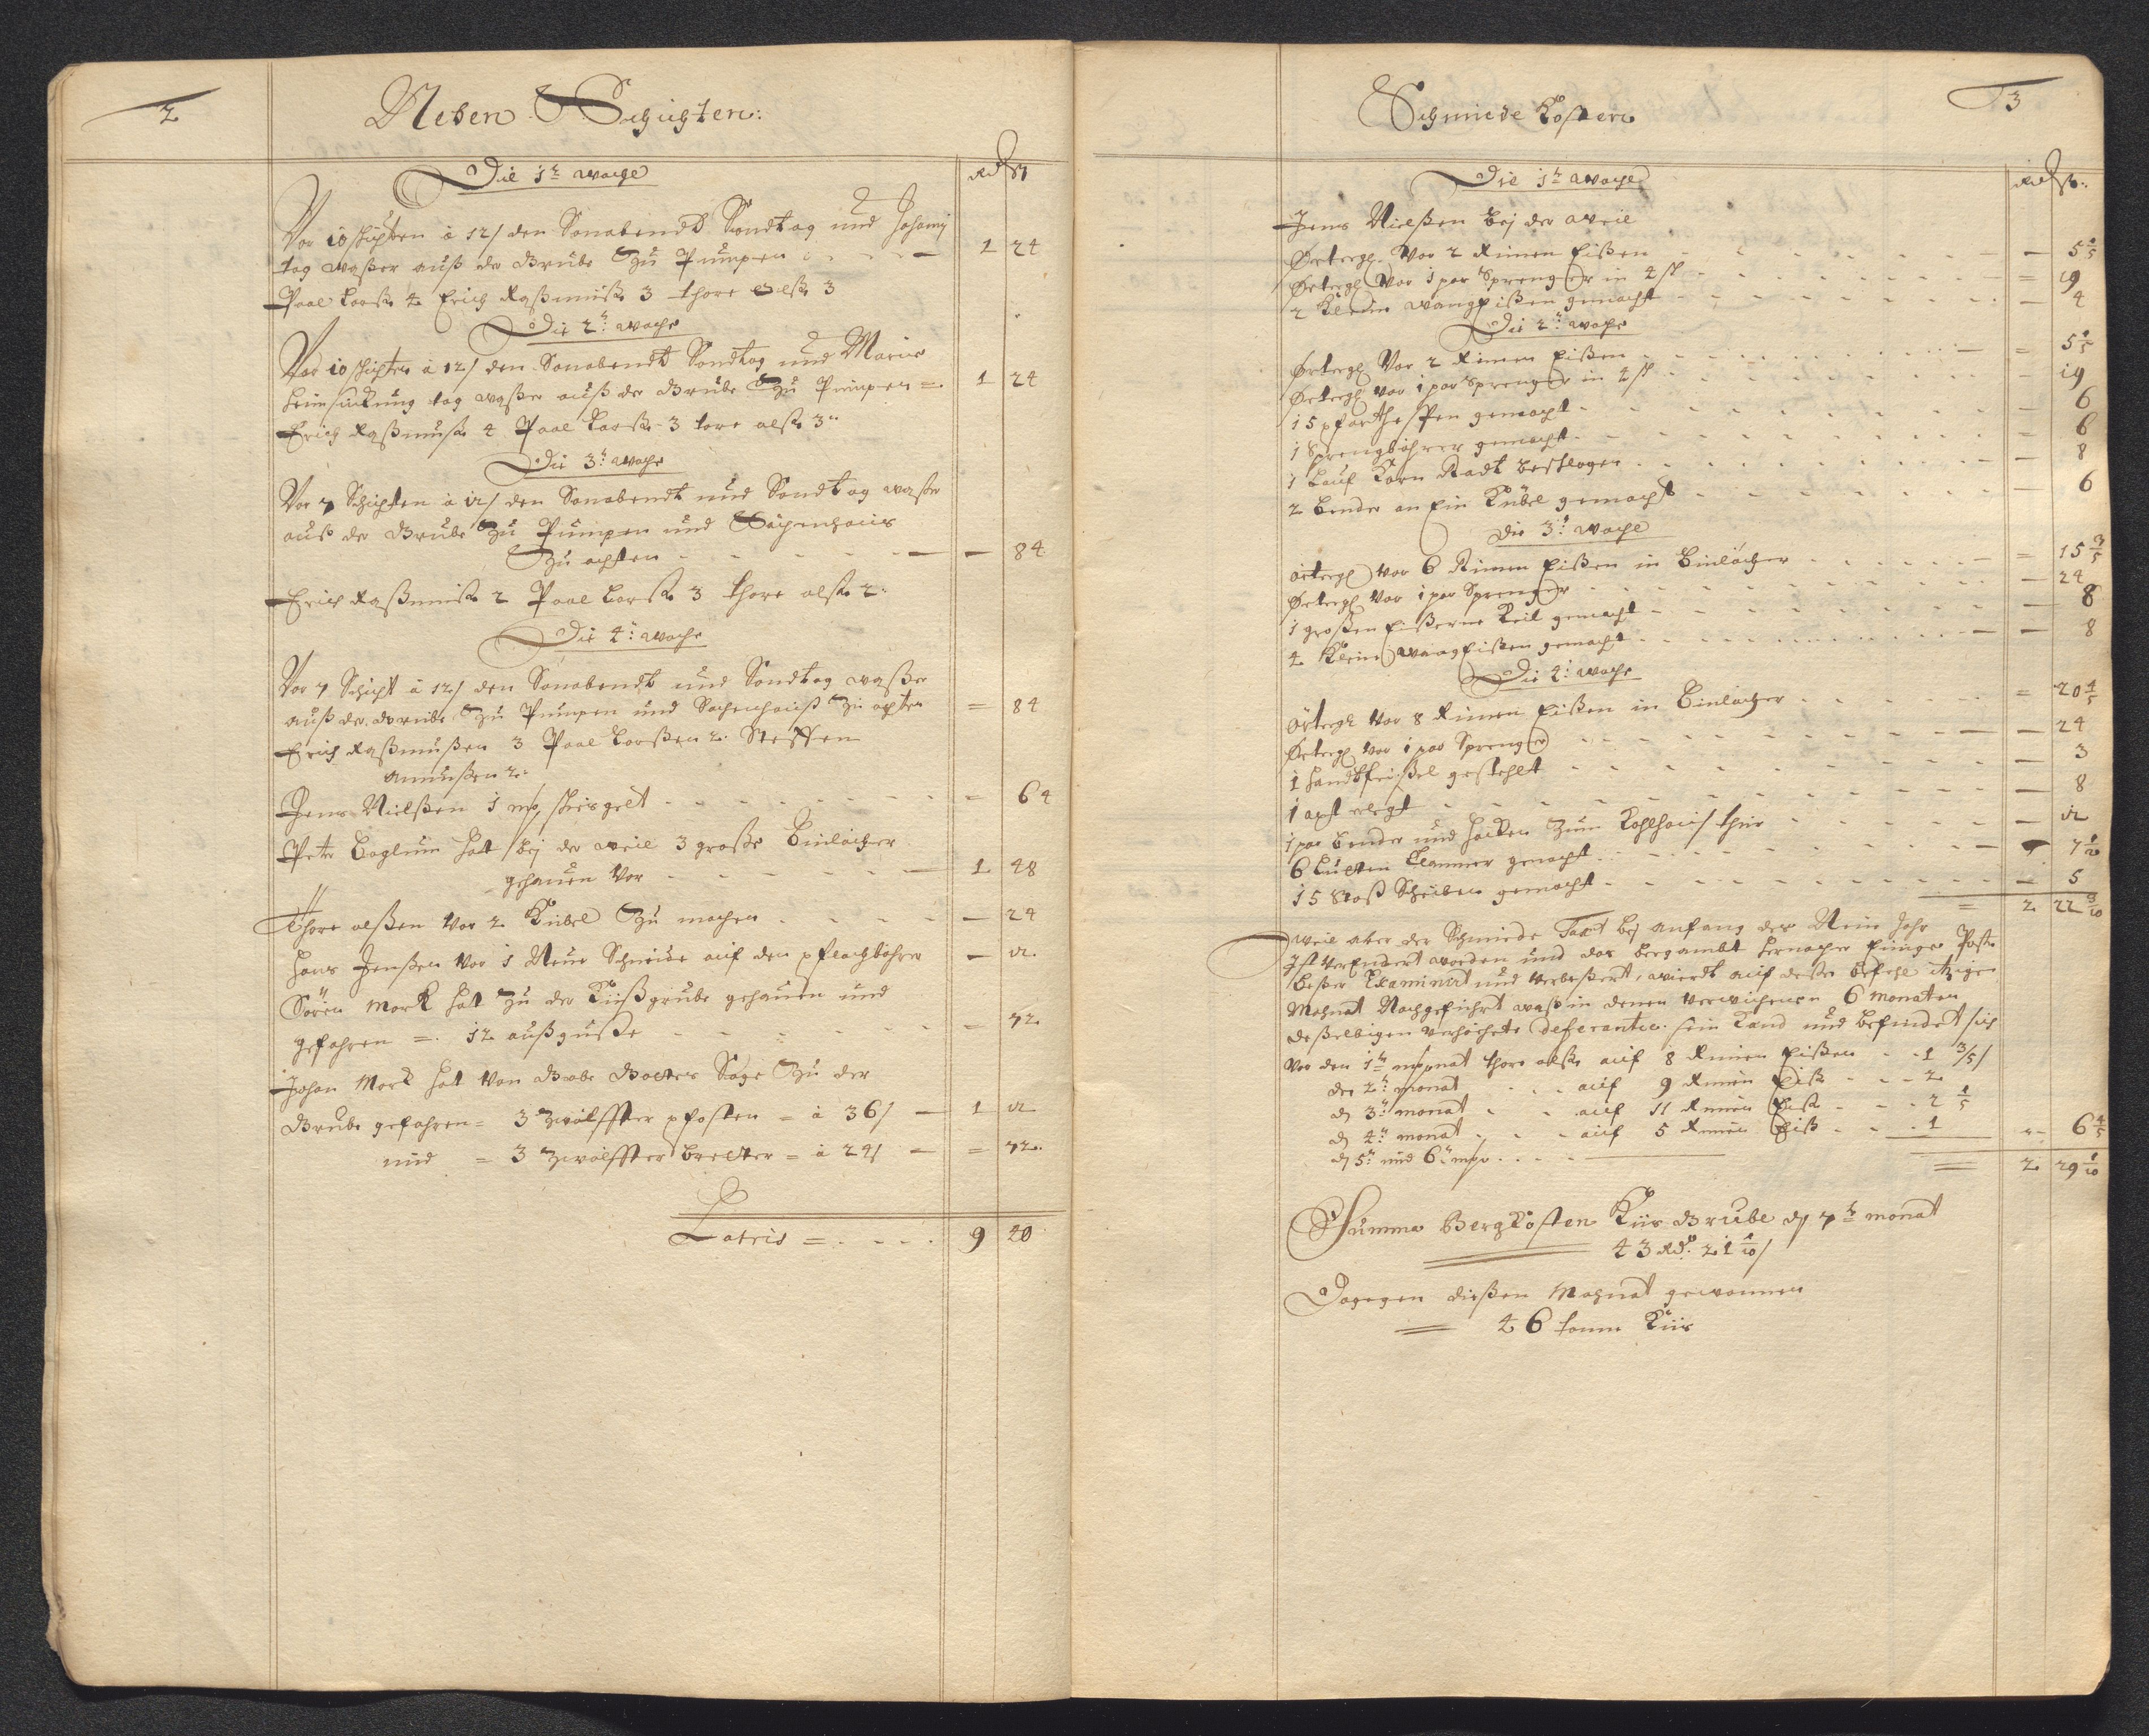 2
Neben Schichten:
Die 1te woche
Rd ß
Vor 10 schichten à 12/ den Sonabendt Sondtag und Johanni
tag waßer auß der Grube Zu Pumpen - - - - 1 24
Paal Larß. 4 Erich Raßmuß. 3 Thore Olß. 3
Die 2te: woche
Vor 10 schichten à 12/ den Sonabendt Sondtag und Marie
heimsuckung tag waßer auß der Grube Zu Pumpen =. 1 24
Erich Raßmuß. 4 Paal Larß. 3 tore olß. 3
Die 3te: woche
Vor 7 Schichten à 12/ den Sonabendt und Sondtag waßer
auß der Grube Zu Pumpen und Sachenhaus
Zu achten - - - - - - 84
Erich Raßmuß. 2 Paal Larß. 3 Thore olß. 2:
Die 4te: woche
Vor 7 Schicht à 12/ den Sonabendt und Sondtag waßer
auß der Grube Zu Pumpen und Sachenhauß Zu achten = 84
Erich Raßmußen 3 Paal Larßen 2. Steffen
Amunßen 2:
Jens Nielßen 1 mo, scheisgelt - - - - - - = 64
Peter Boglum hat bej der weil 3 große Einlöcher
gehauen vor - - - - - - 1 48
Thore olßen vor 2 Kübel Zu machen - - - - - 24
Hans Jenßen vor 1 Neue Schneide auf den pflachbohrer - 12
Sören Mork hat Zu der Kießgrube gehauen und
gefahren =. 12 außguße - - - - - = 72
Johan Mork hat von Brobe Boltes Sage Zu der
Grube gefahren = 3 Zwölffter pfosten = à 36/ - 1 12
und = 3 Zwölffter Bretter = à 24/ - = 72.
Latris = . - - . 9 40
3
Schmiede Kosten
Die 1te woche
Rd ß:
Jens Nielßen bej der weil
Örtergl. Vor 2 Rimen Eißen - - - - - - 5 1/5
Örtergl Vor 1 par Sprenger in 4 st - - - = 19
2 Kleine wangeißen gemacht - - - - - 4
Die 2te: woche
Örtergl Vor 2 Rimen Eißen - - - - - = 5 1/5
Örtergl vor 1 par Sprenger in 4 st - - - - 19
15 pfordtheffen gemacht - - - - - 6
1 Sprengbohrer gemacht - - - - - = 6
1 Lauf Karn Radt beschlagen - - - - - 8
2 Bender an Ein Kübel gemacht - - - - - 6
Die 3te: woche
örtergl vor 6 Rimen Eißen in Einlöcher - - - = 15 3/5
Örtergl vor 1 par Sprenger - - - - - 24
1 großen Eißerne Keil gemacht - - - - - 8
4 Kleine wangEißen gemacht - - - - - 8
Die 4te: woche
örtergl vor 8 Rimen Eißen in Einlöcher - - - = 20 4/5
Örtergl vor 1 par Sprenger - - - - - 24
1 handtfeißel gestehlt - - - - - 3
1 axt elegt - - - - - 8
1 par Bender und Hacken Zum Kohlhaus thür - - - 12
6 Lucten Klammer gemacht - - - - - 7 1/20
15 Stoß Scheiben gemacht - - - - - 5
= 2 22 3/10
weil aber der Schmiede Taxt bej anfang des Neüe Jahr
Ist verEndert worden und das bergambt hernacher Einige Post.
beßer Examinirt und verbeßert, wierdt auf deße befehl itzigen
Mohnat Nachgeführt waß in denen verwichenen 6 monaten
deßelbigen verhöchete deferantie. sein Kand und befindet sich
vor den 1te monat thore olß. auf 8 Rimen Eißen - - 1 3/5/
der 2te: monat - - auf 9 Rimen Eiß - - - 2
d 3te: monat - - auf 11 Rimen Eiß - - - 2 1/5
d 4te: monat - - - auf 5 Rimen Eiß - - - 1 6 4/5
d 5te und 6te mo - - - -
= 2 29 1/10
Summa Bergkosten Kiis Grube d 7te monat
43 Rd: 21 1/10/
Dagegen dießen Mohnat gewonnen
46 tonne Kiis